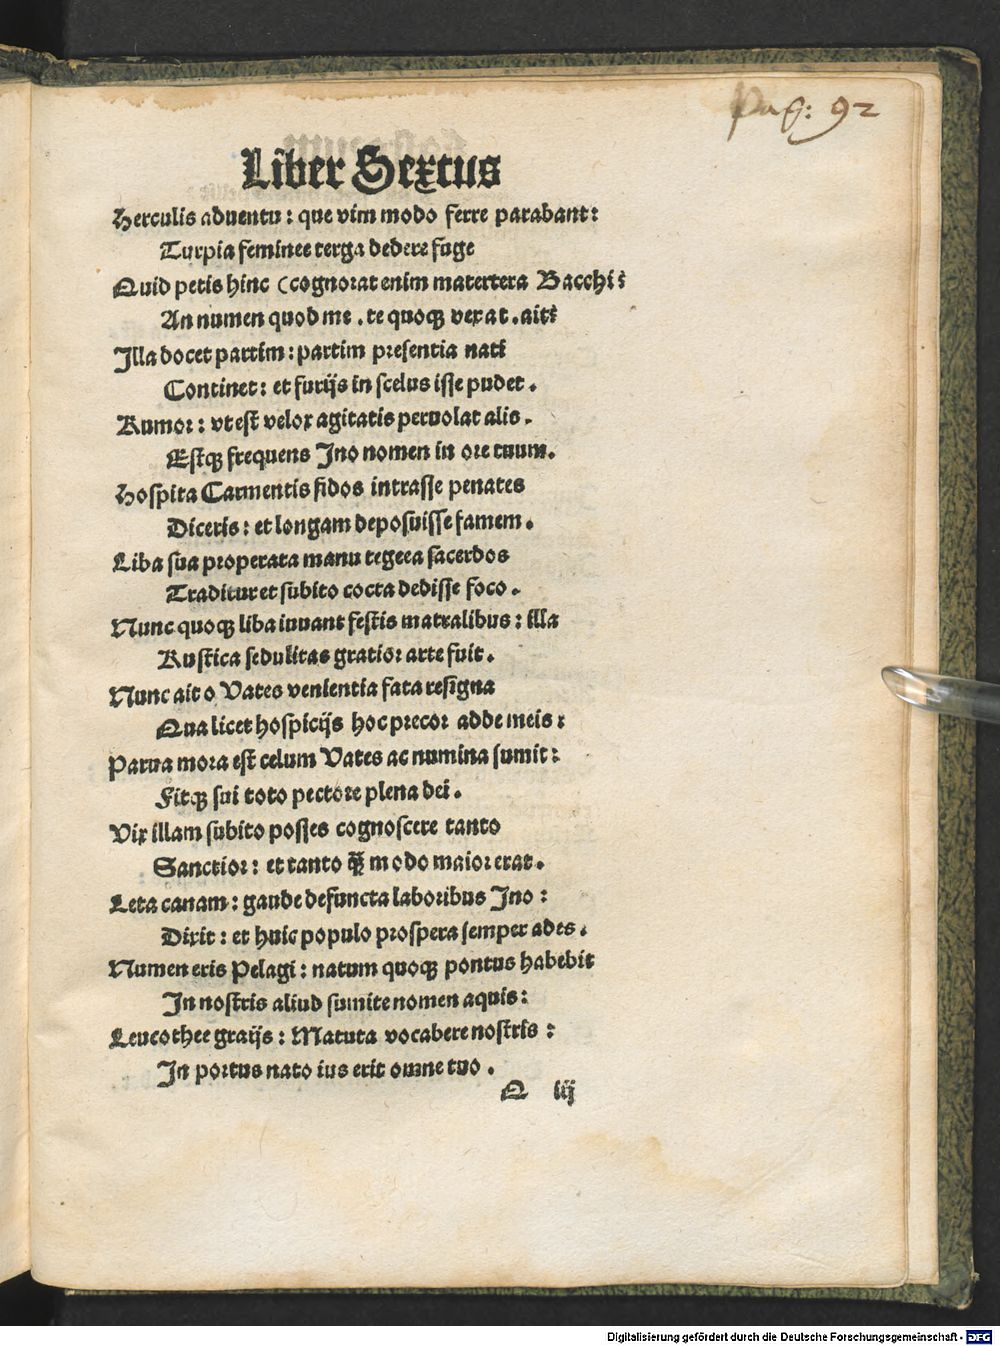 Pag: 92
Liber Sextus
Herculis aduentu: que vim modo ferre parabant:
Turpia feminee terga dedere fuge
Quid petis hinc (cognorat enim matertera Bacchi:
An numen quod me. te quoqꝫ vexat. ait:
Illa docet partim: partim presentia nati
Continet: et furijs in scelus isse pudet.
Rumor: vt est velox agitatis peruolat alis.
Estqꝫ frequens Ino nomen in ore tuum.
Hospita Carmentis fidos intrasse penates
Diceris: et longam deposuisse famem.
Liba sua properata manu tegeea sacerdos
Traditur et subito cocta dedisse foco.
Nunc quoqꝫ liba iuuant festis matralibus: illa
Rustica sedulitas gratior arte fuit.
Nunc ait o Vates venientia fata resigna
Qua licet hospicijs hoc precor adde meis:
Parua mora est celum Vates ac numina sumit:
Fitqꝫ sui toto pectore plena dei.
Vix illam subito posses cognoscere tanto
Sanctior: et tanto qꝫ̄ modo maior erat.
Leta canam: gaude defuncta laboribus Ino:
Dixit: et huic populo prospera semper ades.
Numen eris Pelagi: natum quoqꝫ pontus habebit
In nostris aliud sumite nomen aquis:
Leucothee graijs: Matuta vocabere nostris:
In portus nato ius erit omne tuo.
Q iij
Digitalisierung gefördert durch die Deutsche Forschungsgemeinschaft - DFG